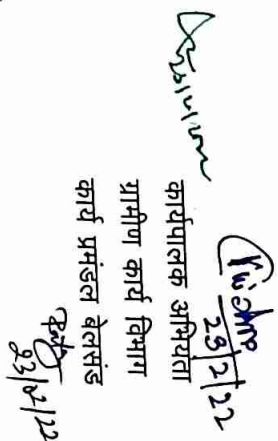 23/2/22
कार्यपालक अभियंता
ग्रामीण कार्य विभाग
कार्य प्रमंडल बेलसंड
23/02/22